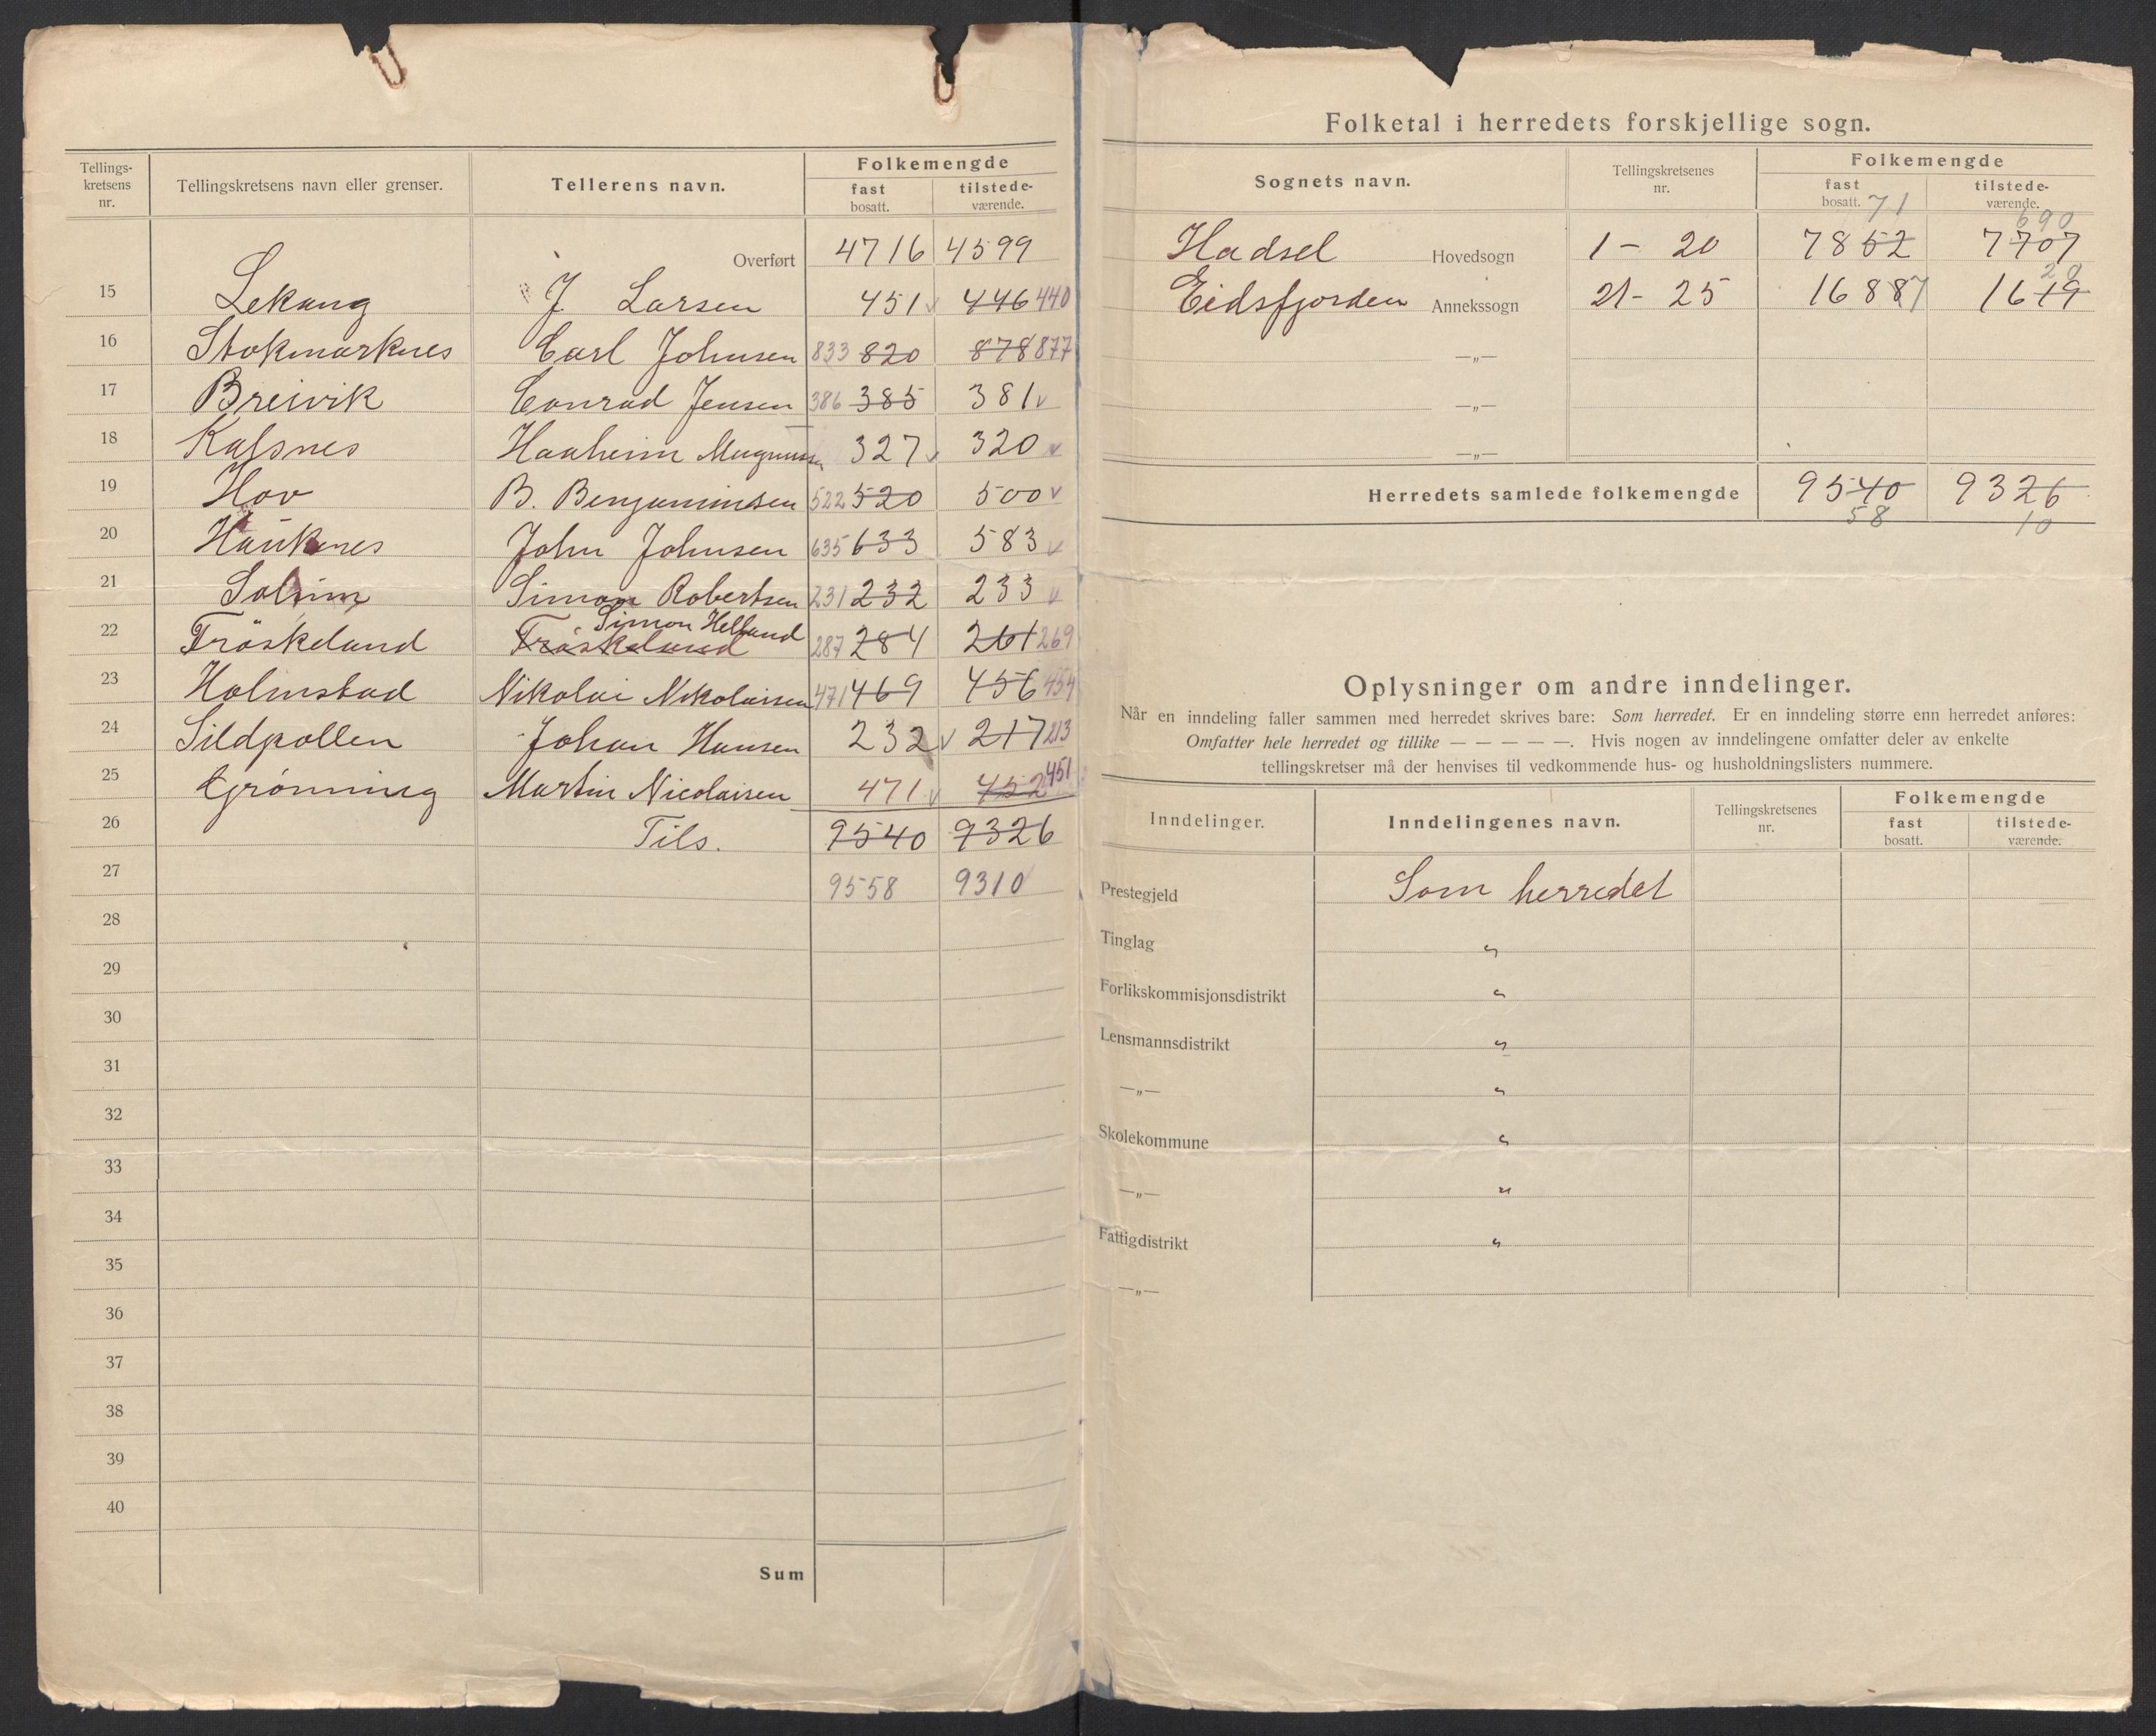 Tellings-kretsens nr. Tellingskretsens navn eller grenser. Tellerens navn. Folkemengde
fast bosatt. tilstede-værende.
Overført 4716 4599
15 Lekang J Larsen 451 446 440
16 Stokmarknes Carl Johnsen 833 820 878 877
17 Breivik Conrad Jensen 386 385 381
18 Kalsnes Haaheim Magnussen 327 320
19 Hov B. Benjaminsen 522 520 500
20 Hauknes John Johnsen 635 633 583
21 Solheim Simon Robertsen 231 232 233
Simon Helland
22 Fröskeland Fröskeland 287 284 261 269
23 Holmstad Nikolai Nikolaisen 471 469 456 454
24 Sildpollen Johan Hansen 232 217 213
25 Grønning Martin Nicolaisen 471 452 451
26 Tils. 9540 9326
27 9558 9310
28
29
30
31
32
33
34
35
36
37
38
39
40
Sum
Folketal i herredets forskjellige sogn.
Sognets navn. Tellingskretsenes nr. Folkemengde
fast bosatt. tilstede-værende.
71 690
Hadsel Hovedsogn 1 - 20 7852 7707
20
Eidsfjorden Annekssogn 21 - 25 1688 7 1619
—„—
—„—
—„—
Herredets samlede folkemengde 9540 9326
58 10
Oplysninger om andre inndelinger.
Når en inndeling faller sammen med herredet skrives bare: Som herredet. Er en inndeling større enn herredet anføres:
Omfatter hele herredet og tillike — — — — —. Hvis nogen av inndelingene omfatter deler av enkelte
tellingskretser må der henvises til vedkommende hus- og husholdningslisters nummere.
Inndelinger. Inndelingenes navn. Tellingskretsenes nr. Folkemengde
fast bosatt. tilstede-værende.
Prestegjeld Som herredet
Tinglag "
Forlikskommisjonsdistrikt "
Lensmannsdistrikt "
—„— "
Skolekommune "
—„— "
Fattigdistrikt "
—„—